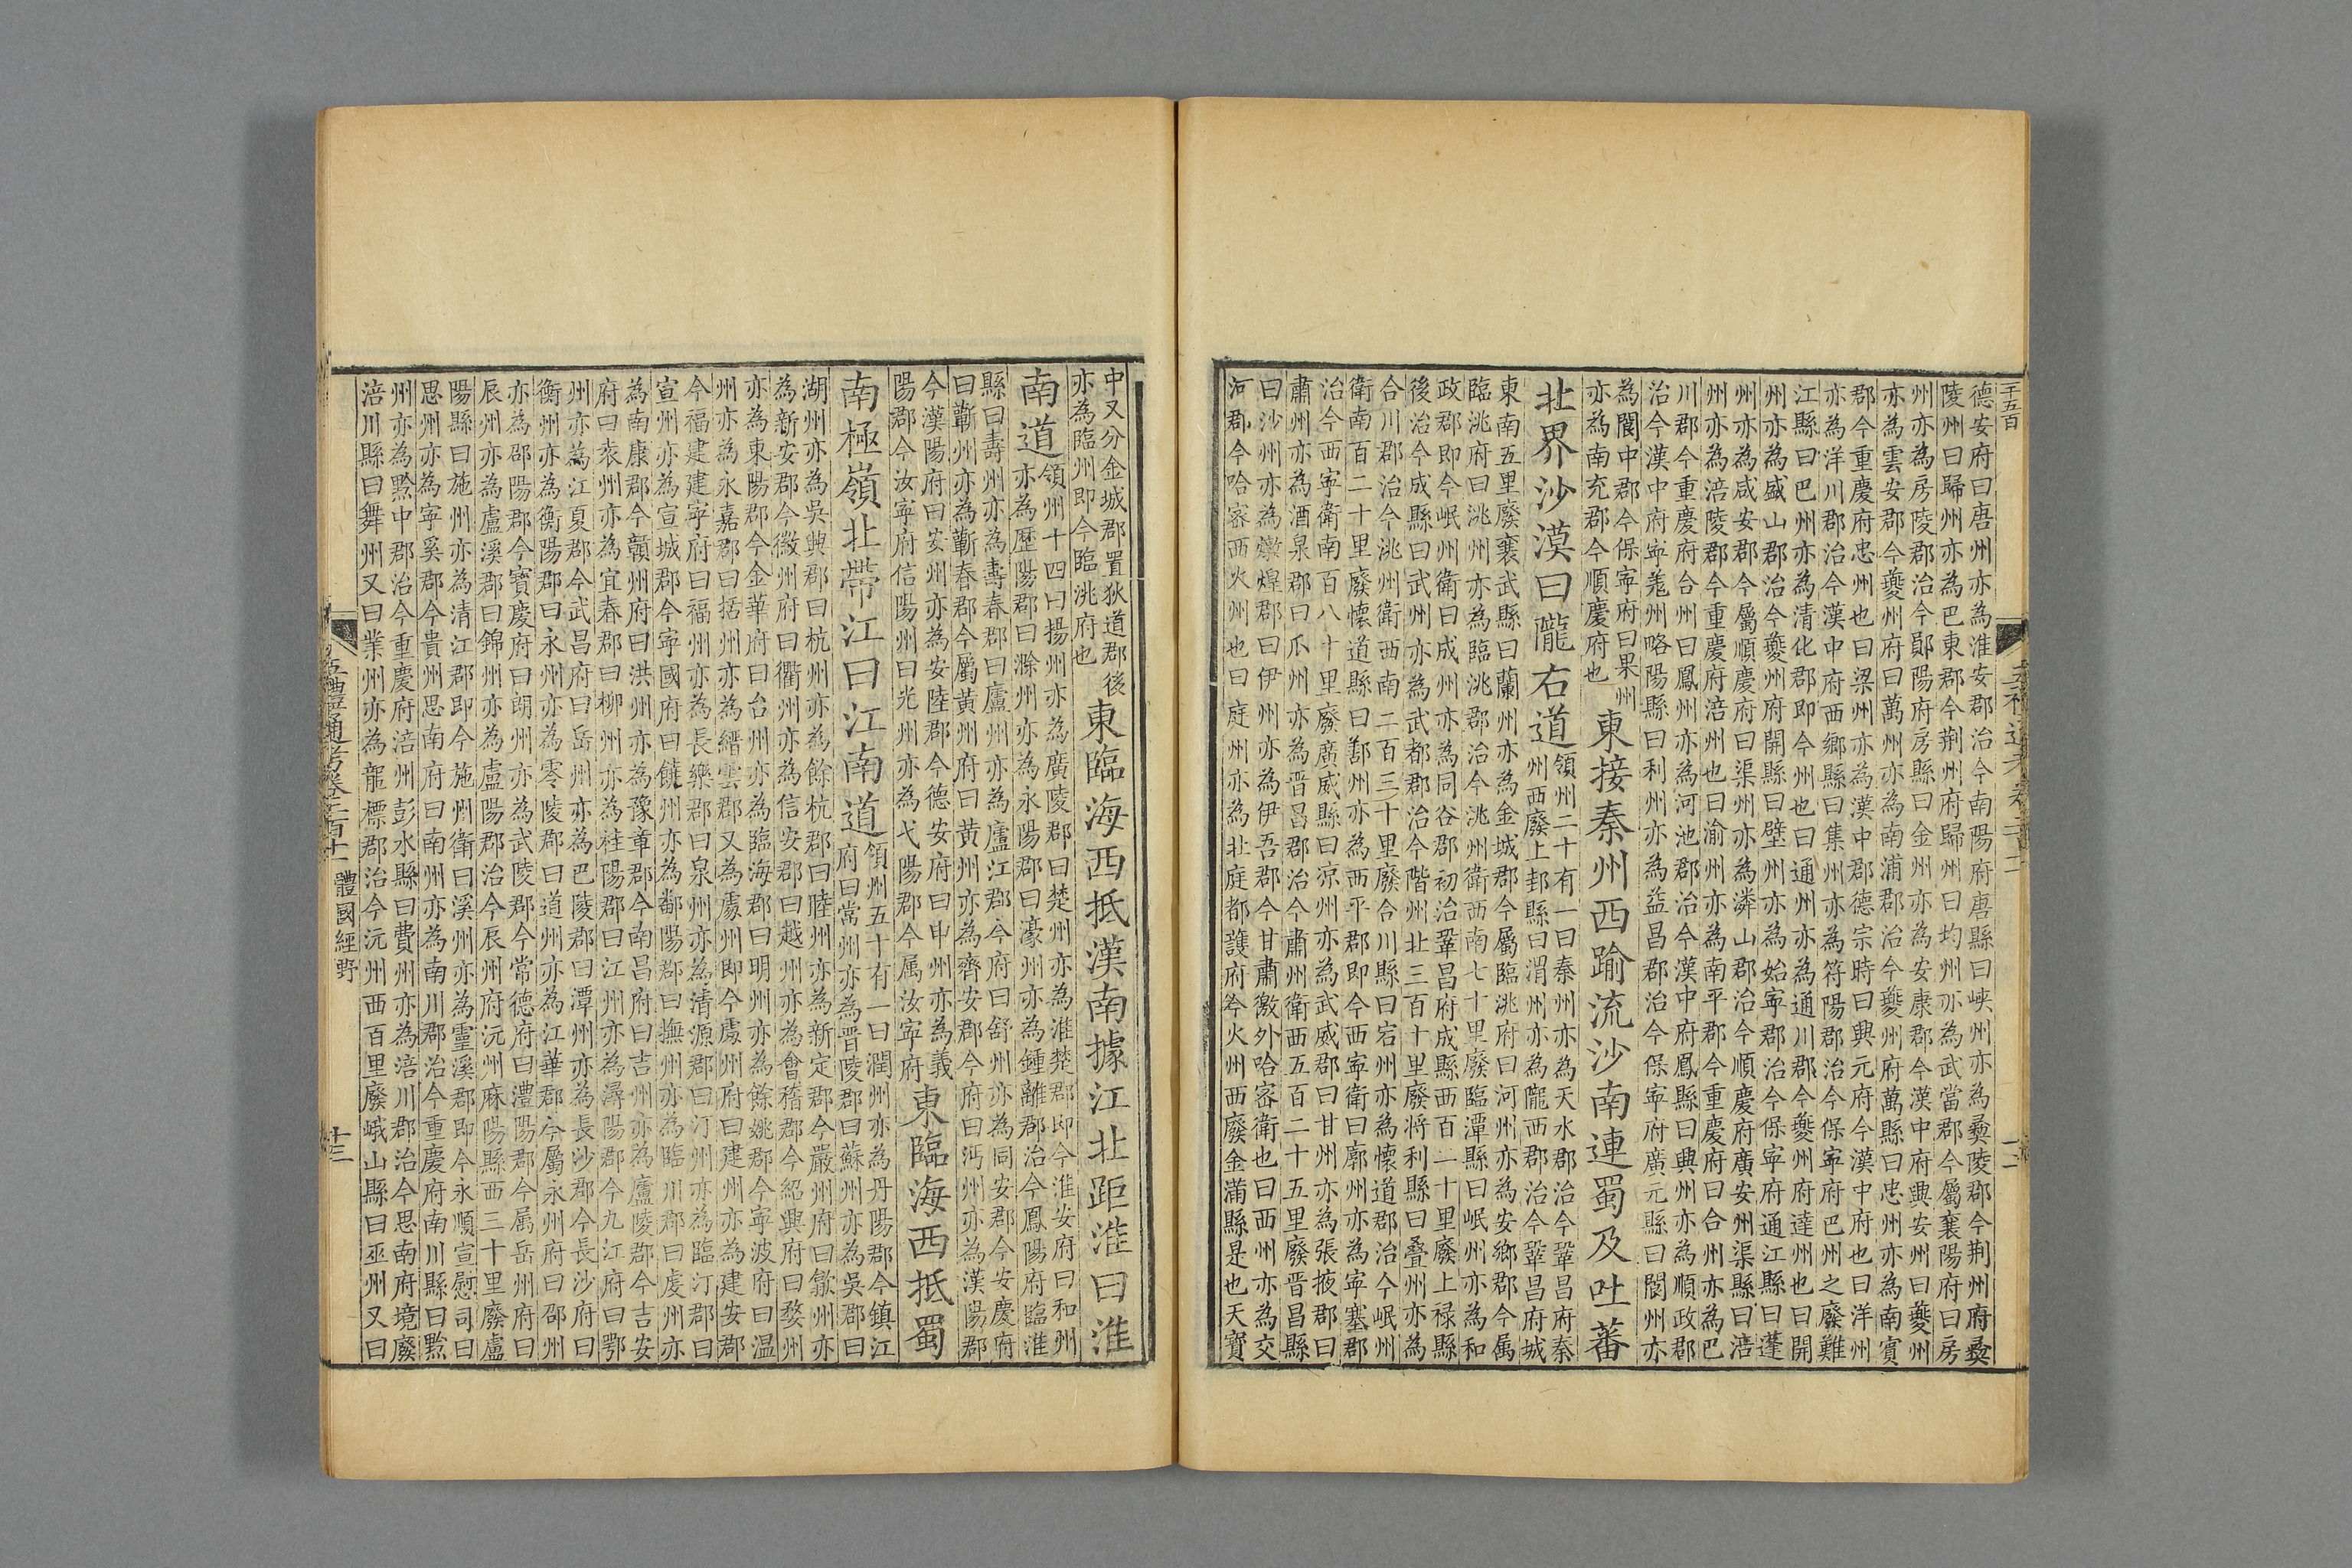 德安府曰唐州亦為淮安郡治今南陽府唐縣曰峽州亦為夷陵郡今荆州府夷
陵州曰歸州亦為巴東郡今荆州府歸州曰均州亦為武當郡今屬襄陽府曰房
州亦為房陵郡治今鄖陽府房縣曰金州亦為安康郡今漢中府興安州曰夔州
亦為雲安郡今夔州府曰萬州亦為南浦郡治今夔州府萬縣曰忠州亦為南賓
郡今重慶府忠州也曰梁州亦為漢中郡德宗時曰興元府今漢中府也曰洋州
亦為洋川郡治今漢中府西鄉縣曰集州亦為符陽郡治今保寧府巴州之廢難
江縣曰巴州亦為清化郡即今州也曰通州亦為通川郡今夔州府達州也曰開
州亦為盛山郡治今夔州府開縣曰壁州亦為始寧郡治今保寧府通江縣曰蓬
州亦為咸安郡今屬順慶府曰渠州亦為潾山郡治今順慶府廣安州渠縣曰涪
州亦為涪陵郡今重慶府涪州也曰渝州亦為南平郡今重慶府曰合州亦為巴
川郡今重慶府合州曰鳳州亦為河池郡治今漢中府鳳縣曰興州亦為順政郡
治今漢中府寧羗州略陽縣曰利州亦為益昌郡治今保寧府廣元縣曰閬州亦
為閬中郡今保寧府曰果州
亦為南充郡今順慶府也
東接秦州西踰流沙南連蜀及吐蕃
北界沙漠曰隴右道
領州二十有一曰秦州亦為天水郡治今鞏昌府秦
州西廢上邽縣曰渭州亦為隴西郡治今鞏昌府城
東南五里廢襄武縣曰蘭州亦為金城郡今屬臨洮府曰河州亦為安鄉郡今属
臨洮府曰洮州亦為臨洮郡治今洮州衛西南七十里廢臨潭縣曰岷州亦為和
政郡即今岷州衛曰成州亦為同谷郡初治鞏昌府成縣西百二十里廢上禄縣
後治今成縣曰武州亦為武都郡治今階州北三百十里廢将利縣曰叠州亦為
合川郡治今洮州衛西南二百三十里廢合川縣曰宕州亦為懷道郡治今岷州
衛南百二十里廢懷道縣曰鄯州亦為西平郡即今西寧衛曰廓州亦為寧塞郡
治今西寧衛南百八十里廢廣威縣曰涼州亦為武威郡曰甘州亦為張掖郡曰
肅州亦為酒泉郡曰瓜州亦為晋昌郡治今肅州衛西五百二十五里廢晋昌縣
曰沙州亦為燉煌郡曰伊州亦為伊吾郡今甘肅徼外哈密衛也曰西州亦為交
河郡今哈密西火州也曰庭州亦為北庭都護府今火州西廢金滿縣是也天寶
中又分金城郡置狄道郡後
亦為臨州即今臨洮府也
東臨海西抵漢南據江北距淮曰淮
南道
領州十四曰揚州亦為廣陵郡曰楚州亦為淮楚郡即今淮安府曰和州
亦為歷陽郡曰滁州亦為永陽郡曰濠州亦為鍾離郡治今鳳陽府臨淮
縣曰壽州亦為壽春郡曰廬州亦為廬江郡今府曰舒州亦為同安郡今安慶府
曰蘄州亦為蘄春郡今屬黃州府曰黃州亦為齊安郡今府曰沔州亦為漢陽郡
今漢陽府曰安州亦為安陸郡今德安府曰申州亦為義
陽郡今汝寧府信陽州曰光州亦為弋陽郡今属汝寧府
東臨海西抵蜀
南極嶺北帶江曰江南道
領州五十有一曰潤州亦為丹陽郡今鎮江
府曰常州亦為晋陵郡曰蘇州亦為吳郡曰
湖州亦為吳興郡曰杭州亦為餘杭郡曰睦州亦為新定郡今嚴州府曰歙州亦
為新安郡今徽州府曰衢州亦為信安郡曰越州亦為會稽郡今紹興府曰婺州
亦為東陽郡今金華府曰台州亦為臨海郡曰明州亦為餘姚郡今寧波府曰温
州亦為永嘉郡曰括州亦為縉雲郡又為處州即今處州府曰建州亦為建安郡
今福建建寧府曰福州亦為長樂郡曰泉州亦為清源郡曰汀州亦為臨汀郡曰
宣州亦為宣城郡今寧國府曰饒州亦為鄱陽郡曰撫州亦為臨川郡曰虔州亦
為南康郡今贛州府曰洪州亦為豫章郡今南昌府曰吉州亦為廬陵郡今吉安
府曰袁州亦為宜春郡曰郴州亦為桂陽郡曰江州亦為潯陽郡今九江府曰鄂
州亦為江夏郡今武昌府曰岳州亦為巴陵郡曰潭州亦為長沙郡今長沙府曰
衡州亦為衡陽郡曰永州亦為零陵郡曰道州亦為江華郡今屬永州府曰邵州
亦為邵陽郡今寶慶府曰朗州亦為武陵郡今常德府曰澧陽郡今属岳州府曰
辰州亦為盧溪郡曰錦州亦為盧陽郡治今辰州府沅州麻陽縣西三十里廢盧
陽縣曰施州亦為清江郡即今施州衛曰溪州亦為靈溪郡即今永順宣慰司曰
思州亦為寧夷郡今貴州思南府曰南州亦為南川郡治今重慶府南川縣曰黔
州亦為黔中郡治今重慶府涪州彭水縣曰費州亦為涪川郡治今思南府境廢
涪川縣曰舞州又曰業州亦為龍標郡治今沅州西百里廢峨山縣曰巫州又曰
五禮通考卷二百十一
體國經野
十三